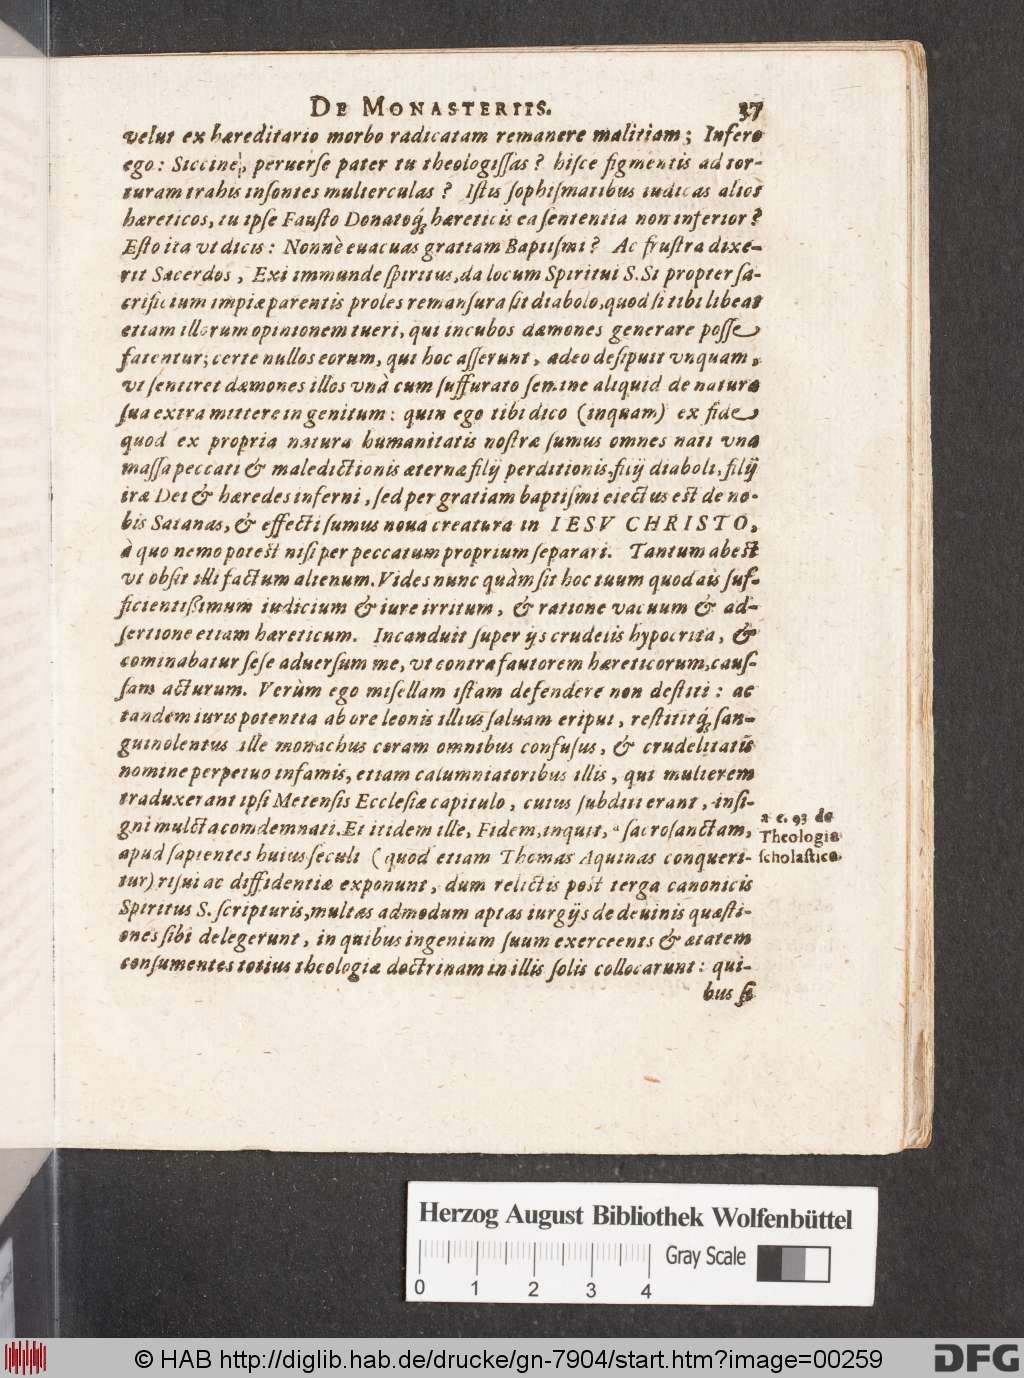 DE MONASTERIIS. 37
velut ex hæreditario morbo radicatam remanere malitiam; Infero
ego: Siccine, peruerſe pater tu theologiſſas? hiſce figmentis ad tor-
turam trahis inſontes mulierculas? Iſtis ſophiſmatibus iudicas alios
hæreticos, tu ipſe Fauſto Donatoq́; hæreticis ea ſententia non inferior?
Eſto ita vt dicis: Nonnè euacuas gratiam Baptiſmi? Ac fruſtra dixe-
rit Sacerdos, Exi immunde ſpiritus, da locum Spiritui S. Si propter ſa-
crificium impiæ parentis proles remanſura ſit diabolo, quod ſi tibi libeat
etiam illorum opinionem tueri, qui incubos dæmones generare poſſe
fatentur; certe nullos eorum, qui hoc aſſerunt, adeo deſipuit vnquam,
vt ſentiret dæmones illos vnà cum ſuffurato ſemine aliquid de natura
ſua extra mittere in genitum: quin ego tibi dico (inquam) ex fide
quod ex propria natura humanitatis noſtræ ſumus omnes nati vna
maſſa peccati & maledictionis æternæ filij perditionis, filij diaboli, filij
iræ Dei & hæredes inferni, ſed per gratiam baptiſmi eiectus eſt de no-
bis Satanas, & effecti ſumus noua creatura in IESV CHRISTO,
à quo nemo poteſt niſi per peccatum proprium ſeparari. Tantum abeſt
vt obſit illi factum alienum. Vides nunc quàm ſit hoc tuum quod ais ſuf-
ficientiſſimum iudicium & iure irritum, & ratione vacuum & ad-
ſertione etiam hæreticum. Incanduit ſuper ijs crudelis hypocrita, &
cominabatur ſeſe aduerſum me, vt contra fautorem hæreticorum, cauſ-
ſam acturum. Verùm ego miſellam iſtam defendere non deſtiti: ac
tandem iuris potentia ab ore leonis illius ſaluam eripui, reſtititq́; ſan-
guinolentus ille monachus coram omnibus confuſus, & crudelitatis
nomine perpetuo infamis, etiam calumniatoribus illis, qui mulierem
traduxerant ipſi Metenſis Eccleſiæ capitulo, cuius ſubditi erant, inſi-
gni mulcta comdemnati. Et itidem ille, Fidem, inquit, ª ſacroſanctam,
apud ſapientes huius ſeculi (quod etiam Thomas Aquinas conqueri-
tur) riſui ac diffidentiæ exponunt, dum relictis poſt terga canonicis
Spiritus S. ſcripturis, multas admodum aptas iurgijs de deuinis quæſti-
ones ſibi delegerunt, in quibus ingenium ſuum exerceents & ætatem
conſumentes totius theologiæ doctrinam in illis ſolis collocarunt: qui-
bus ſi
a c. 93 de
Theologia
ſcholaſtica.
Herzog August Bibliothek Wolfenbüttel
Gray Scale
0 1 2 3 4
© HAB http://diglib.hab.de/drucke/gn-7904/start.htm?image=00259
DFG